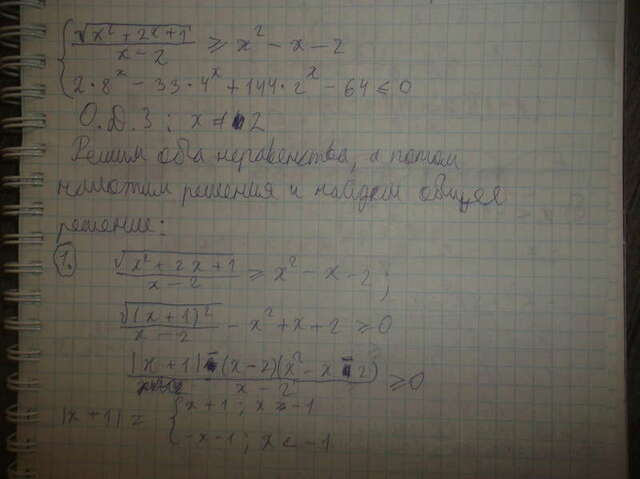 { √(x² + 2x + 1) / (x - 2) ≥ x² - x - 2
2 · 8ˣ - 33 · 4ˣ + 144 · 2ˣ - 64 ≤ 0
О.Д.З ; x ≠ 2
Решим оба неравенства, а потом
наложим решения и найдём общее
решение:
1. √(x² + 2x + 1) / (x - 2) ≥ x² - x - 2;
√((x + 1)²) / (x - 2) - x² + x + 2 ≥ 0
(|x + 1| - (x - 2)(x² - x - 2)) / (x - 2) ≥ 0
|x + 1| = { x + 1 ; x ≥ -1
-x - 1 ; x < -1